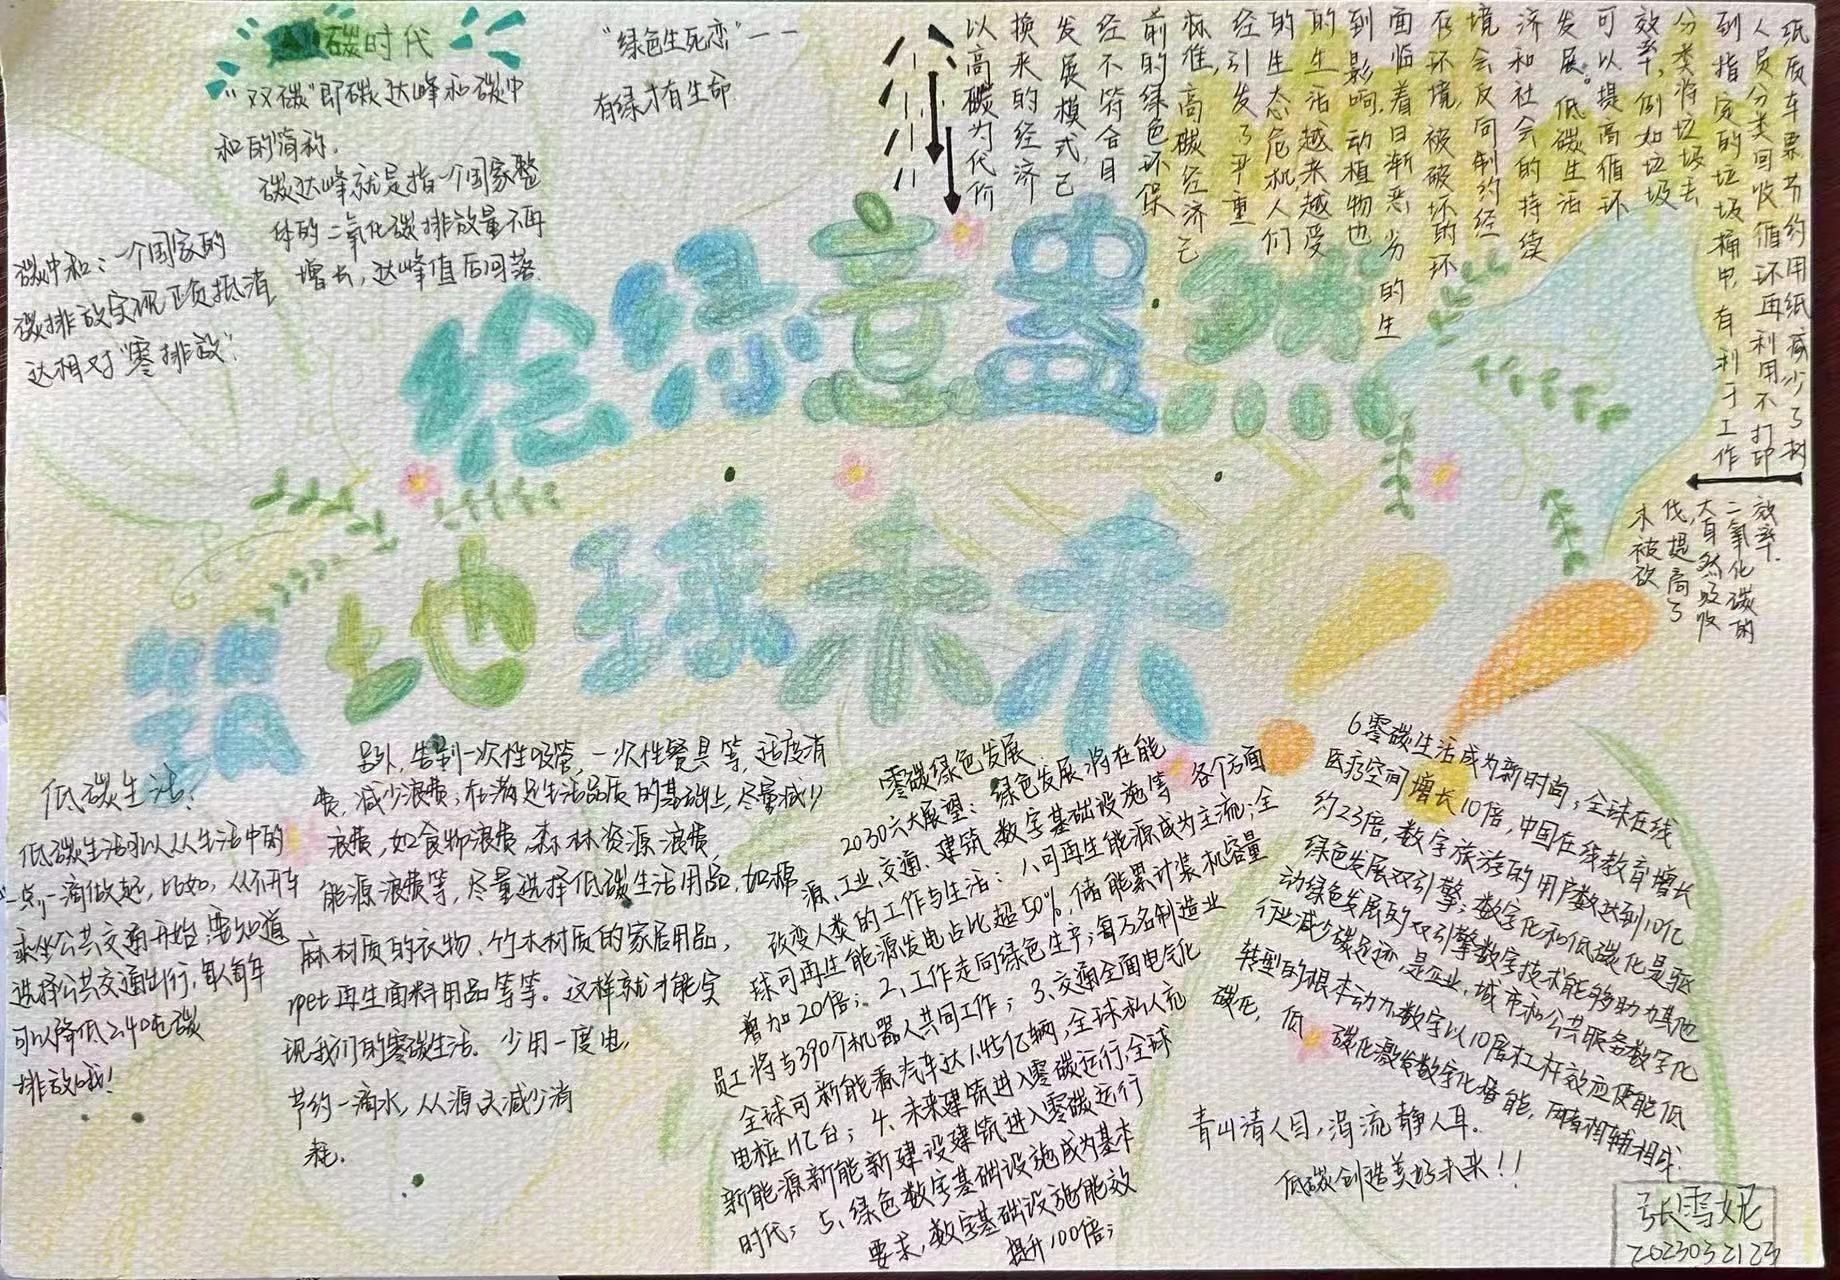 碳时代
"双碳"即碳达峰和碳中
和的简称.
碳达峰就是指一个国家整
体的二氧化碳排放量不再
增长,达峰值后回落.
碳中和:一个国家的
碳排放实现正负抵消
达相对"零排放".
"绿色生死恋"——
有绿才有生命.
以高碳为代价
换来的经济
发展模式,已
经不符合目
前的绿色环保
标准,高碳经济已
经引发了严重
的生态危机,人们
的生活越来越受
到影响,动植物也
面临着日渐恶劣的生
存环境,被破坏的环
境会反向制约经
济和社会的持续
发展。低碳生活
可以提高循环
效率,例如垃圾
分类将垃圾去
到指定的垃圾桶中,有利于工作
人员分类回收循环再利用不打印
纸质车票节约用纸减少了树
木被砍
伐,提高了
大自然吸收
二氧化碳的
效率.
绘绿意盎然
筑地球未来!!
低碳生活:
低碳生活可以从生活中的
一点一滴做起,比如,从不开车
乘坐公共交通开始,要知道
选择公共交通出行,每人每年
可以降低2.40吨碳
排放哦!
另外,告别一次性吸管,一次性餐具等,适度消
费,减少浪费,在满足生活品质的基础上,尽量减少
浪费,如食物浪费,森林资源浪费,
能源浪费等,尽量选择低碳生活用品,如棉
麻材质的衣物,竹木材质的家居用品,
rpet再生面料用品等等。这样就才能实
现我们的零碳生活。少用一度电,
节约一滴水,从源头减少消
耗.
零碳绿色发展
2030六大展望:绿色发展将在能
源、工业、交通、建筑、数字基础设施等各个方面
改变人类的工作与生活:1、可再生能源成为主流;全
球可再生能源发电占比超50%,储能累计装机容量
增加20倍;2、工作走向绿色生产;每万名制造业
员工将与390个机器人共同工作;3、交通全面电气化
全球可新能源汽车达1.45亿辆,全球私人充
电桩1亿台;4、未来建筑进入零碳运行,全球
新能源新能新建设建筑进入零碳运行
时代;5、绿色数字基础设施成为基本
要求,数字基础设施能效
提升100倍;
6零碳生活成为新时尚;全球在线
医疗空间增长10倍,中国在线教育增长
约23倍,数字旅游的用户数达到10亿
绿色发展双引擎:数字化和低碳化是驱
动绿色发展的双引擎数字技术能够助力其他
行业减少碳足迹,是企业,城市和公共服务数字化
转型的根本动力,数字以10倍杠杆效应使能低
碳化,低碳化激发数字化潜能,两者相辅相成.
青山清人目,涓流静人耳.
低碳创造美好未来!!
张雪妮
2023032123